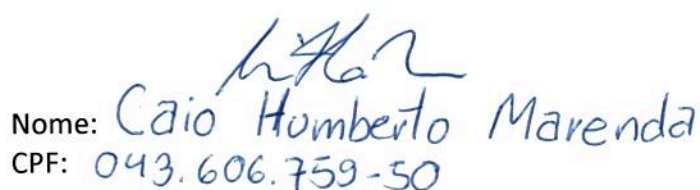 Nome: Caio Humberto Marenda
CPF: 043.606.759-50